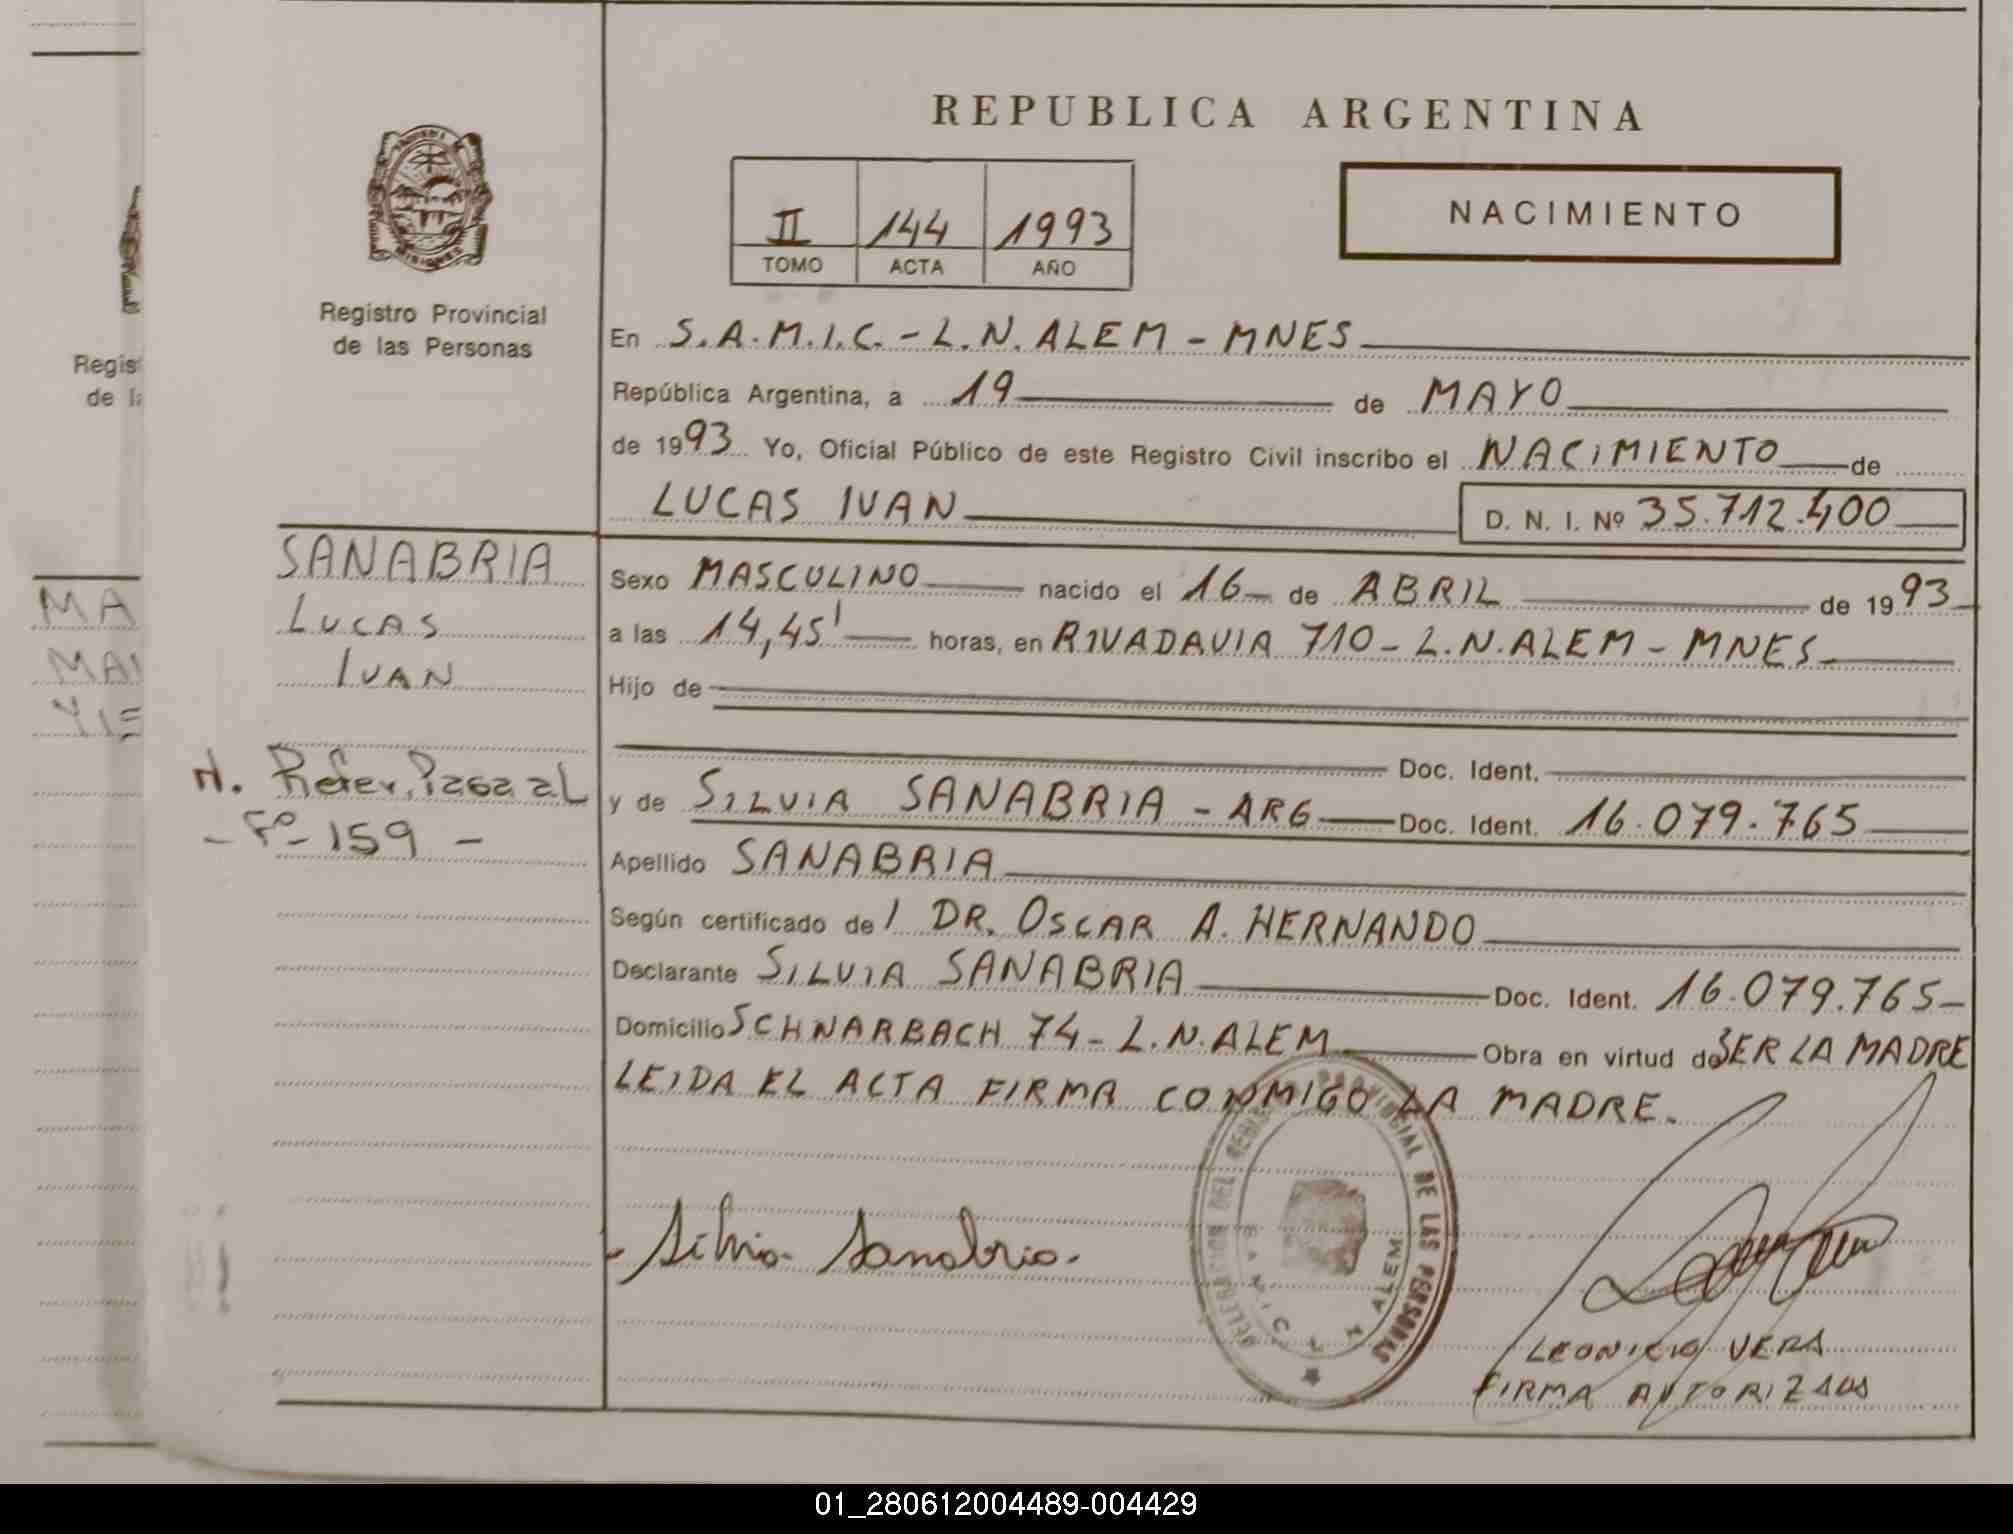 REPUBLICA ARGENTINA
NACIMIENTO
II 144 1993
TOMO ACTA AÑO
MISIONES
Registro Provincial
de las Personas
Regis
de la
En S.A.M.I.C. - L.N. ALEM - MNES
República Argentina, a 19 de MAYO
de 1993 Yo, Oficial Público de este Registro Civil inscribo el NACIMIENTO de
LUCAS IVAN D. N. I. Nº 35.712.400
SANABRIA
LUCAS
IVAN
MA
MAI
YI
N. Refer. Pasa al
- Fº - 159 -
Sexo MASCULINO nacido el 16 de ABRIL de 1993
a las 14,45' horas, en RIVADAVIA 710 - L.N. ALEM - MNES
Hijo de
Doc. Ident.
y de SILVIA SANABRIA - ARG Doc. Ident. 16.079.765
Apellido SANABRIA
Según certificado de / DR. OSCAR A. HERNANDO
Declarante SILVIA SANABRIA Doc. Ident. 16.079.765
Domicilio SCHNARBACH 74 - L.N. ALEM Obra en virtud de SER LA MADRE
LEIDA EL ACTA FIRMA CONMIGO LA MADRE.
Silvia Sanabria.
DELEGACION DEL REGISTRO PROVINCIAL DE LAS PERSONAS
ALEM
LEONICIO VERA
FIRMA AUTORIZADA
01_280612004489-004429